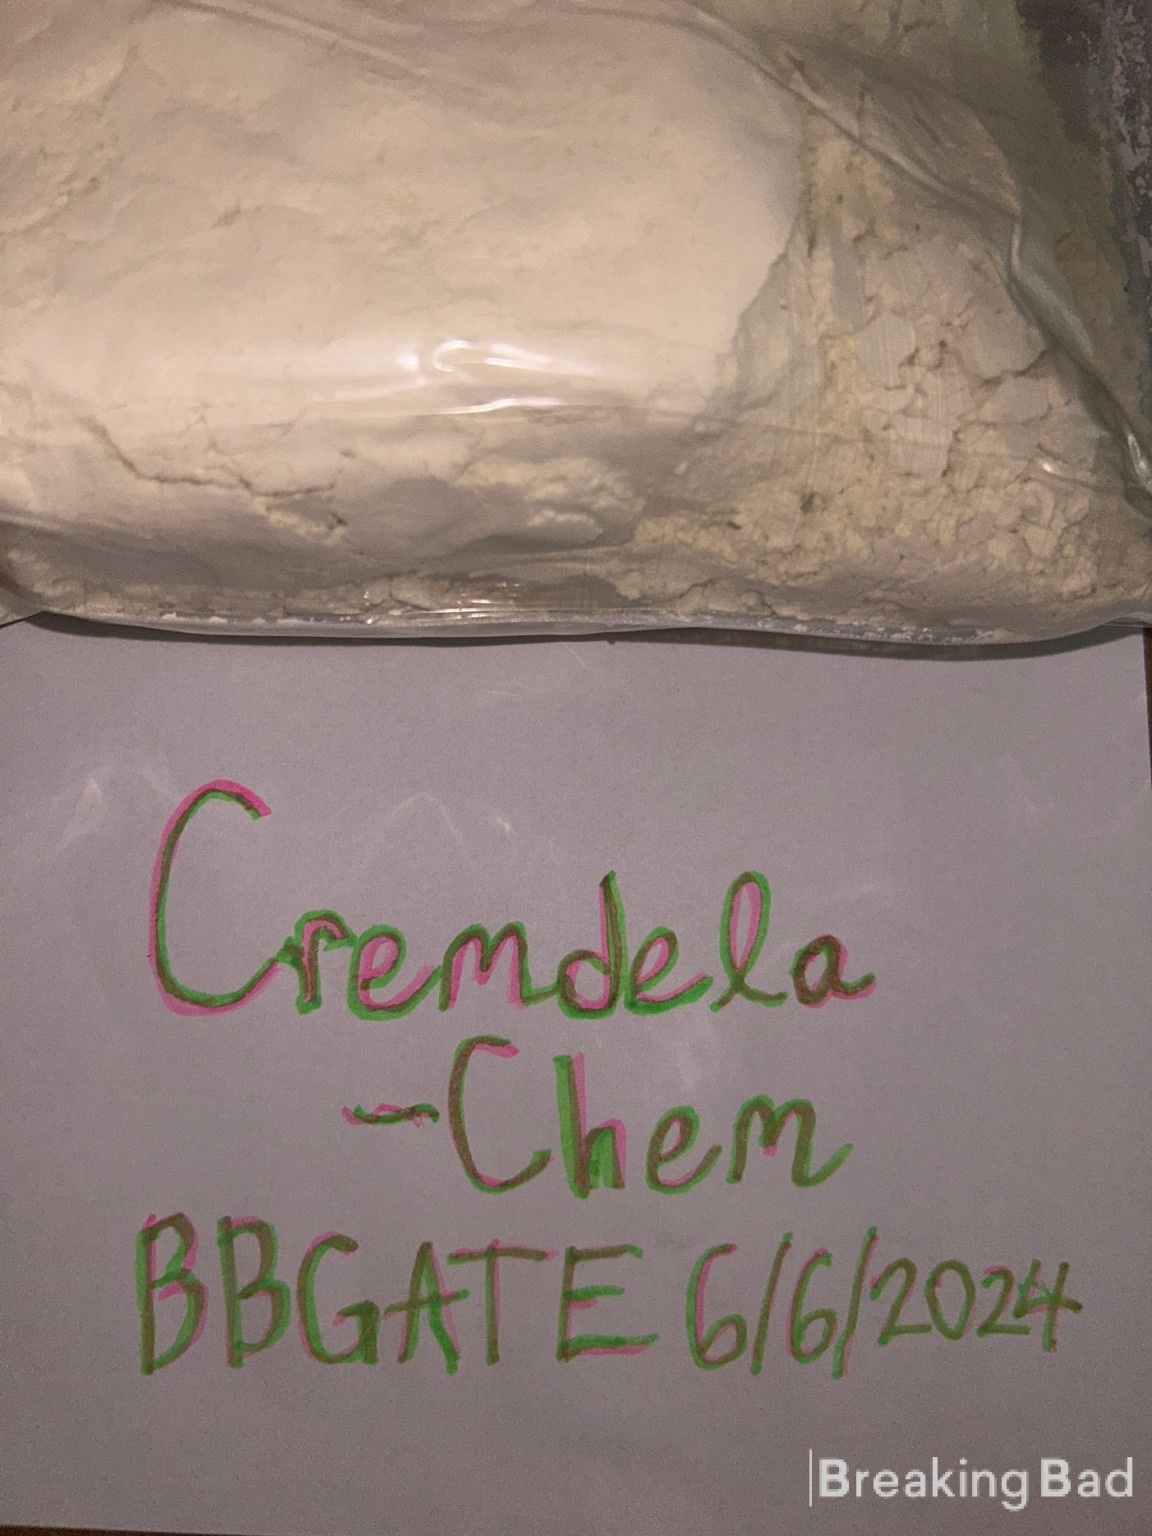 Cremdela
-Chem
BBGATE 6/6/2024
Breaking Bad